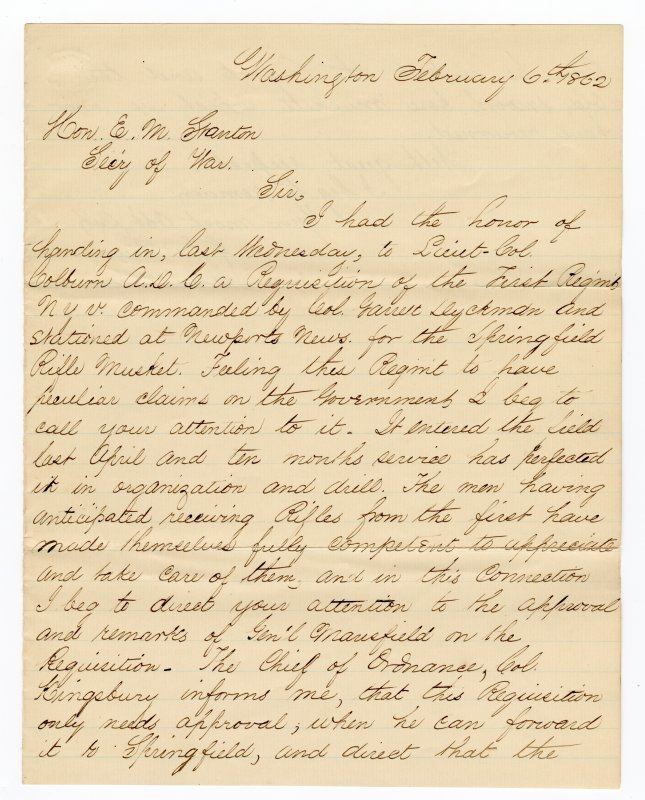 Washington February 6th 1862
Hon. E. M. Stanton
Sec'y of War.
Sir,
I had the honor of
handing in, last Wednesday, to Lieut-Col.
Colburn A.D.C. a Requisition of the First Regmt
N Y V. commanded by Col. Garret Dyckman and
stationed at Newports News. for the Springfield
Rifle Musket. Feeling this Regmt to have
peculiar claims on the Government, I beg to
call your attention to it. It entered the field
last April and ten months service has perfected
it in organization and drill. The men having
anticipated receiving Rifles from the first have
made themselves fully competent to appreciate
and take care of them, and in this connection
I beg to direct your attention to the approval
and remarks of Gen'l Mansfield on the
Requisition - The Chief of Ordnance, Col.
Kingsbury informs me, that this Requisition
only needs approval, when he can forward
it to Springfield, and direct that the